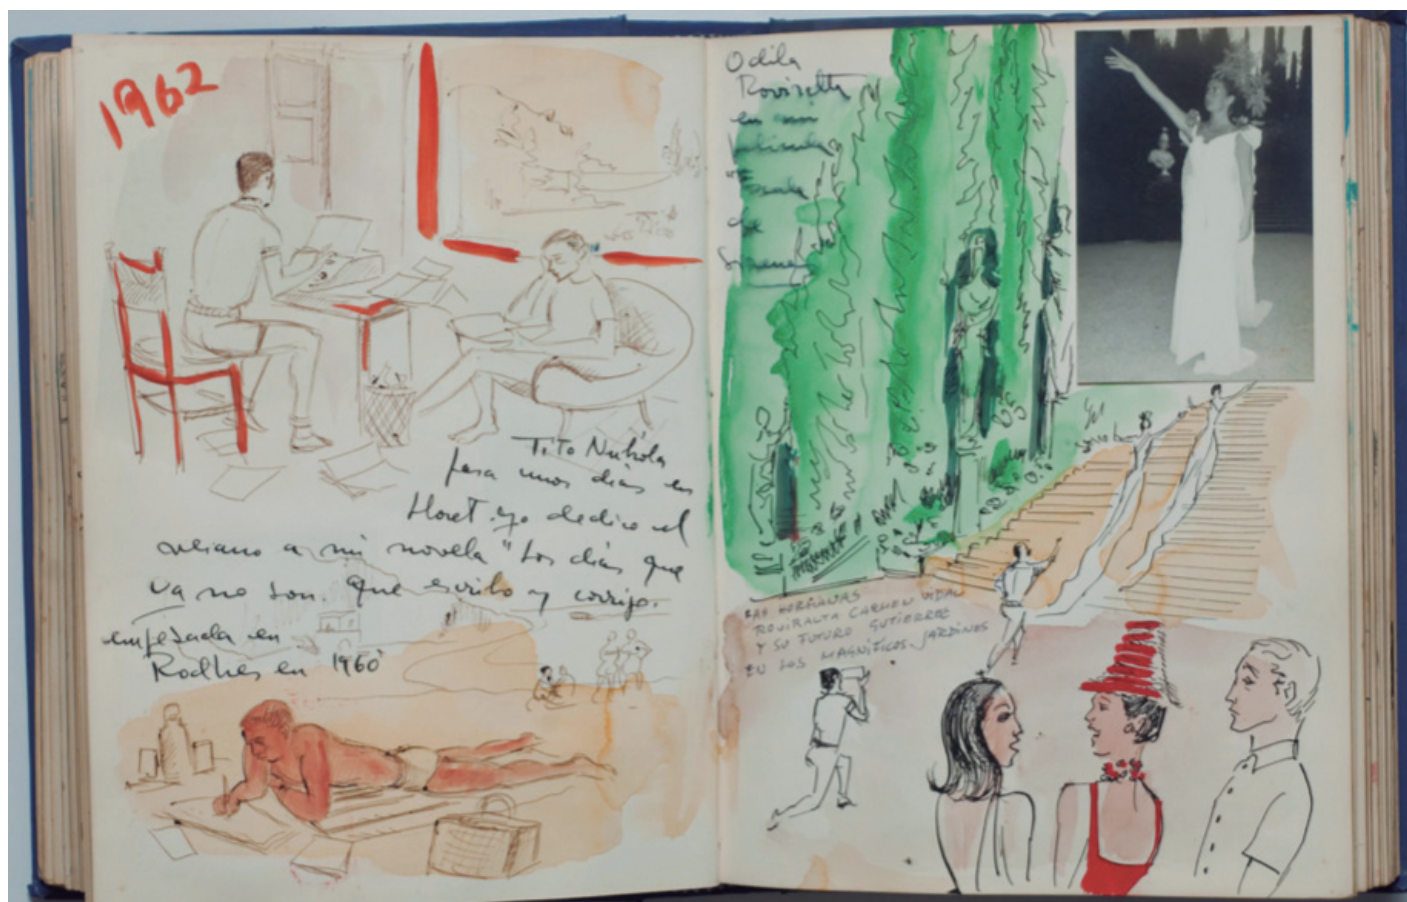 1962
Tito Nubiola
pasa unos dias en
Lloret. Yo dedico el
verano a mi novela "Los dias que
ya no son. que escribo y corrijo.
empezada en
Rodhes en 1960"
Odila
Roviralta
en una
pelicula
de
Sirenas
LAS HERMANAS
ROVIRALTA CARMEN VIDAL
Y SU FUTURO GUTIERREZ
EN LOS MAGNÍFICOS JARDINES